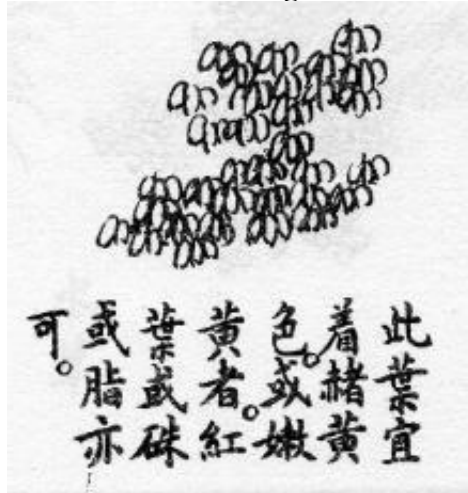 此葉宜
着赭黄
色。或嫩
黄者。紅
葉或硃
或脂亦
可。